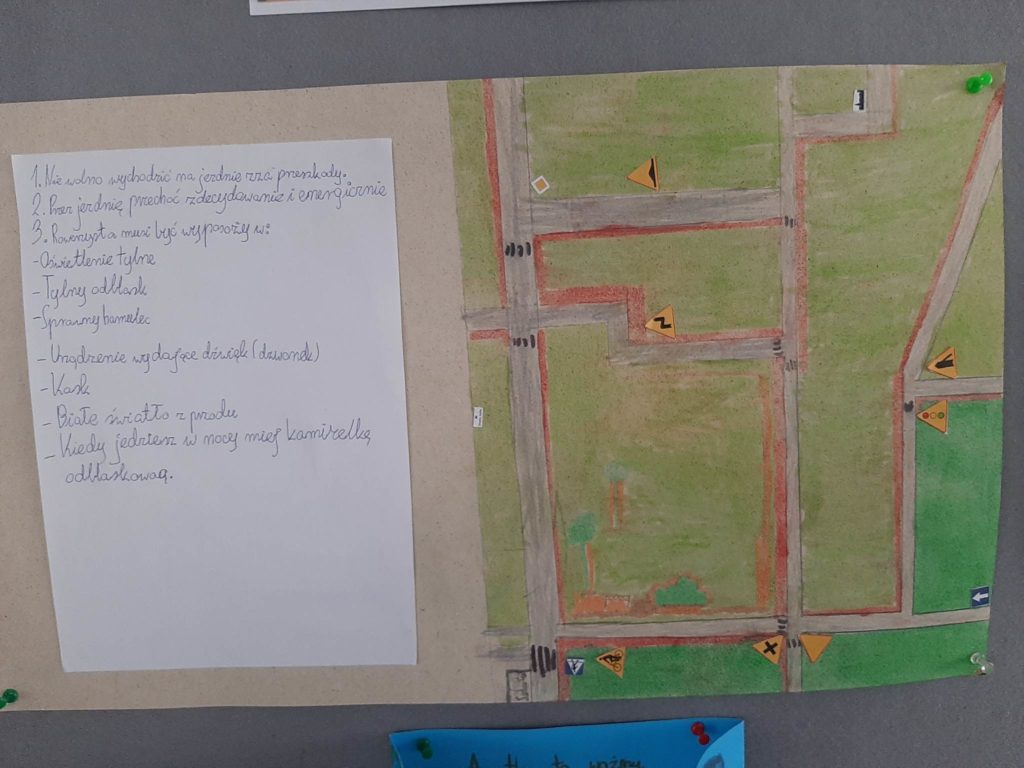 1. Nie wolno wychodzić na jezdnię zza przeszkody.
2. Przez jezdnię przechoć zdecydowanie i energicznie
3. Rowerzysta musi być wyposoży w:
- Oświetlenie tylne
- Tylny odblask
- Sprawny hamulec
- Urządzenie wydające dźwięk (dzwonek)
- Kask
- Białe światło z przodu
- Kiedy jedziesz w nocy miej kamizelkę
odblaskową.